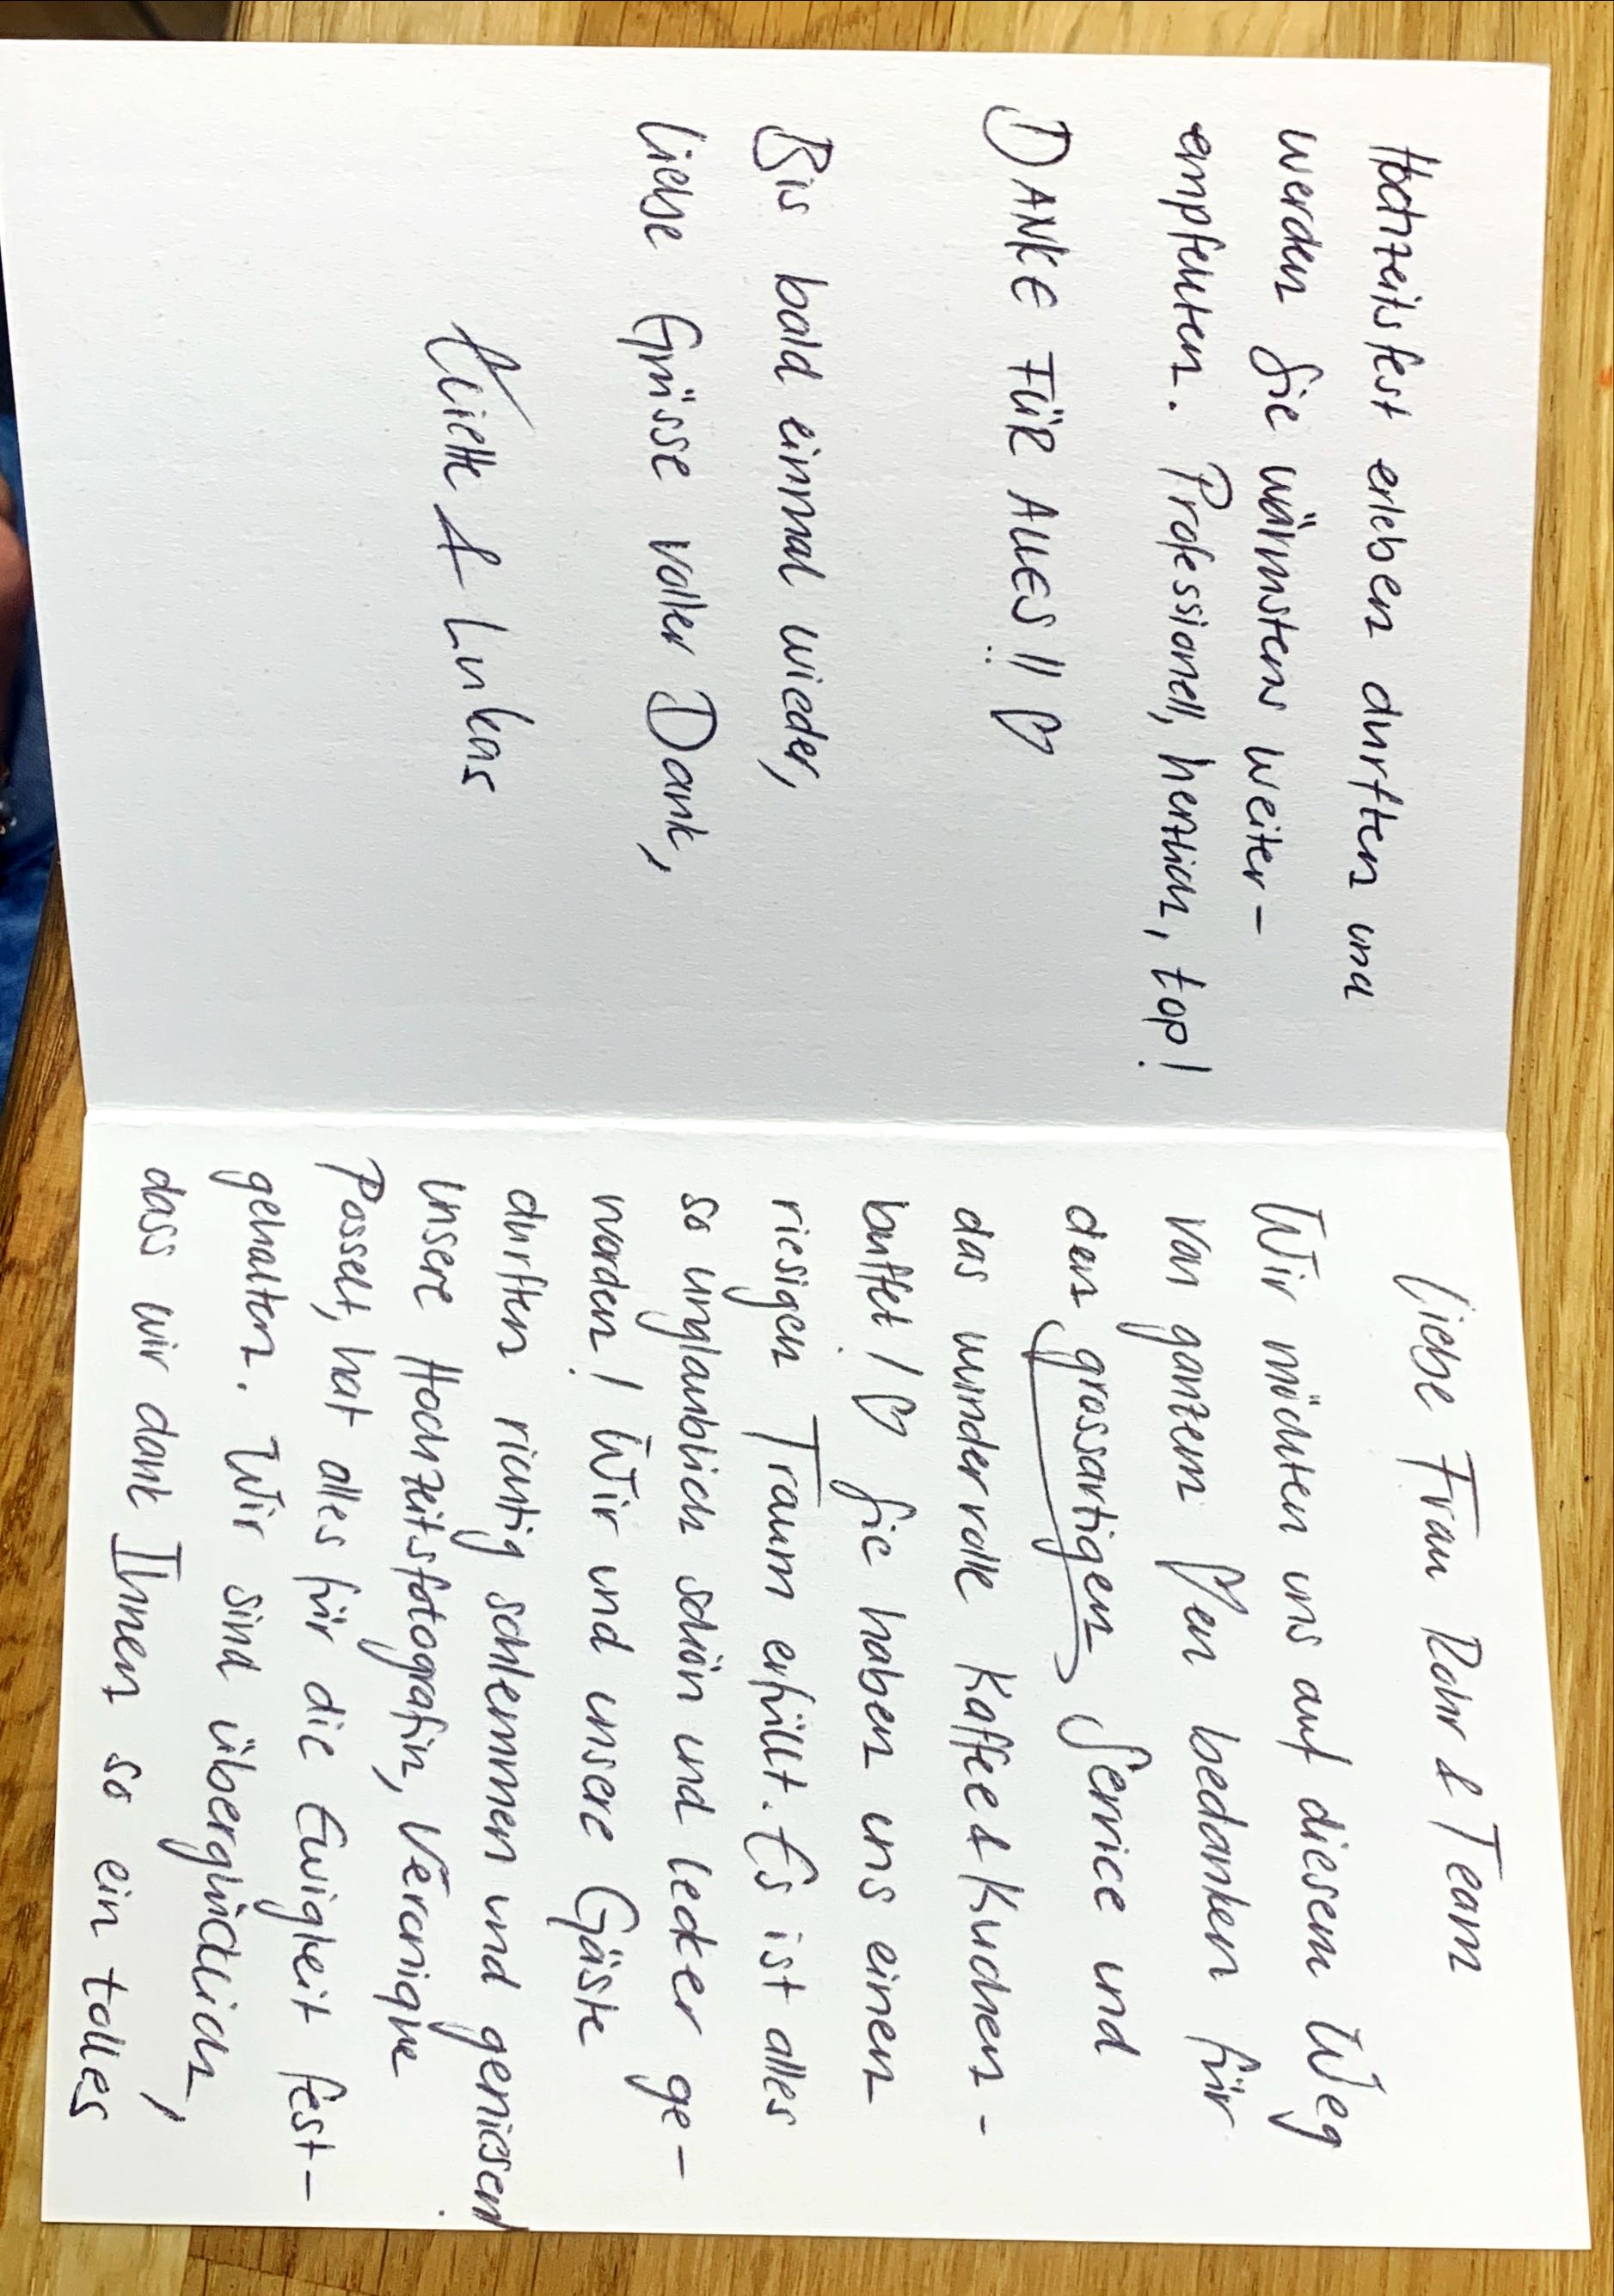 Liebe Frau Rohr & Team
Wir möchten uns auf diesem Weg
von ganzem ♡en bedanken für
den grossartigen Service und
das wundervolle Kaffee & Kuchen-
buffet! ♡ Sie haben uns einen
riesigen Traum erfüllt. Es ist alles
so unglaublich schön und lecker ge-
worden! Wir und unsere Gäste
durften richtig schlemmen und geniessen!
Unsere Hochzeitsfotografin, Veronique
Posselt, hat alles für die Ewigkeit fest-
gehalten. Wir sind überglücklich,
dass wir dank Ihnen so ein tolles
Hochzeitsfest erleben durften und
werden Sie wärmstens weiter-
empfehlen. Professionell, herzlich, top!
DANKE FÜR ALLES!! ♡
Bis bald einmal wieder,
Liebe Grüsse voller Dank,
& Lukas